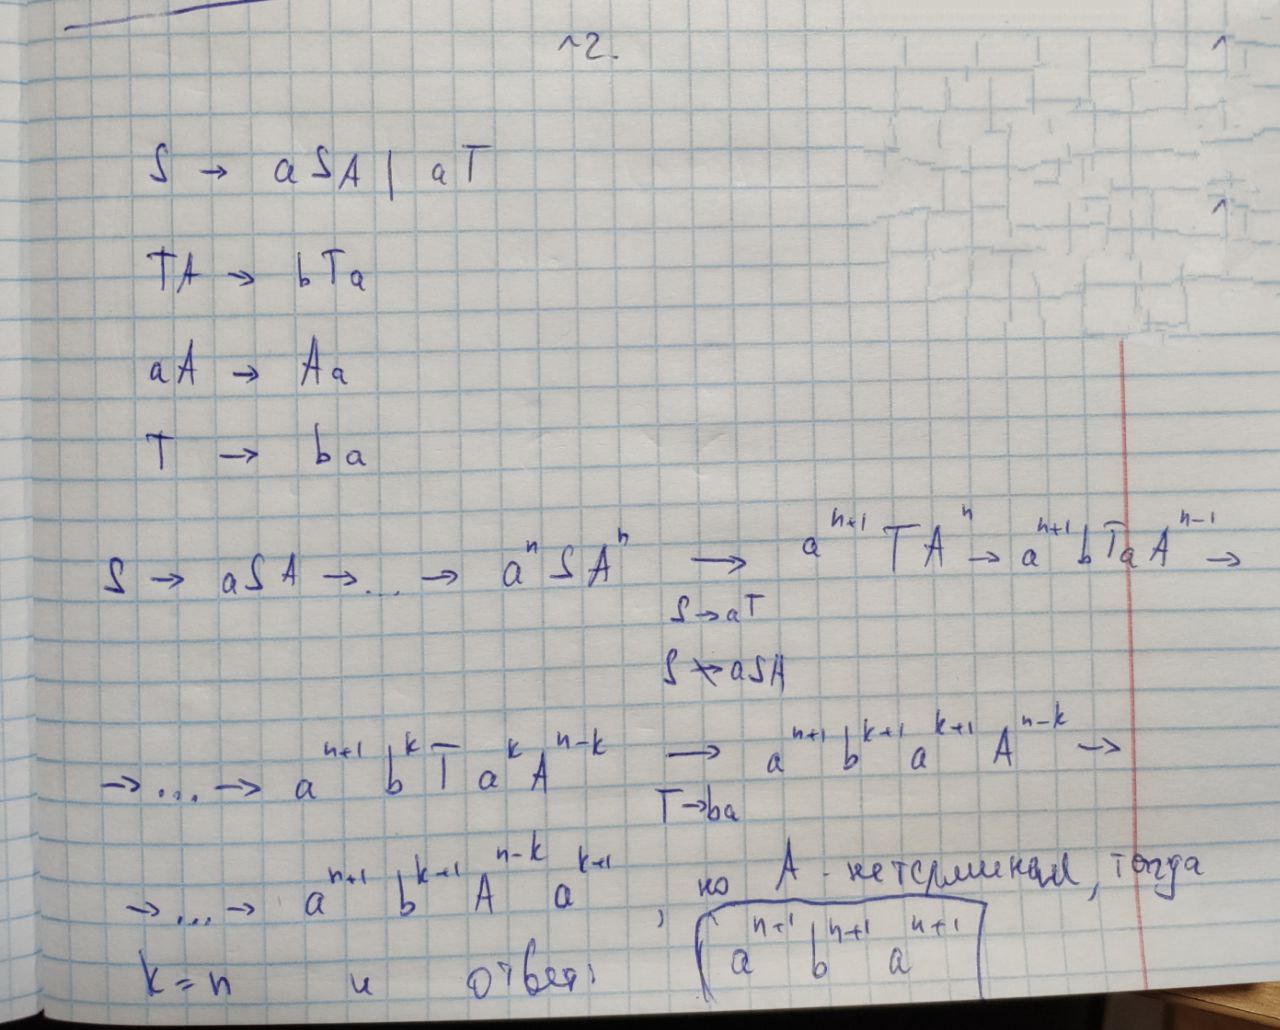 ~2.
S → aSA | aT
TA → bTa
aA → Aa
T → ba
S → aSA → ... → aⁿSAⁿ → aⁿ⁺¹TAⁿ → aⁿ⁺¹bTaAⁿ⁻¹ →
S→aT
S↛aSA
→ ... → aⁿ⁺¹ bᵏ T aᵏ Aⁿ⁻ᵏ → aⁿ⁺¹ bᵏ⁺¹ aᵏ⁺¹ Aⁿ⁻ᵏ →
T→ba
→ ... → aⁿ⁺¹ bᵏ⁺¹ Aⁿ⁻ᵏ aᵏ⁺¹, но A - нетерминал, тогда
k=n и ответ: aⁿ⁺¹ bⁿ⁺¹ aⁿ⁺¹